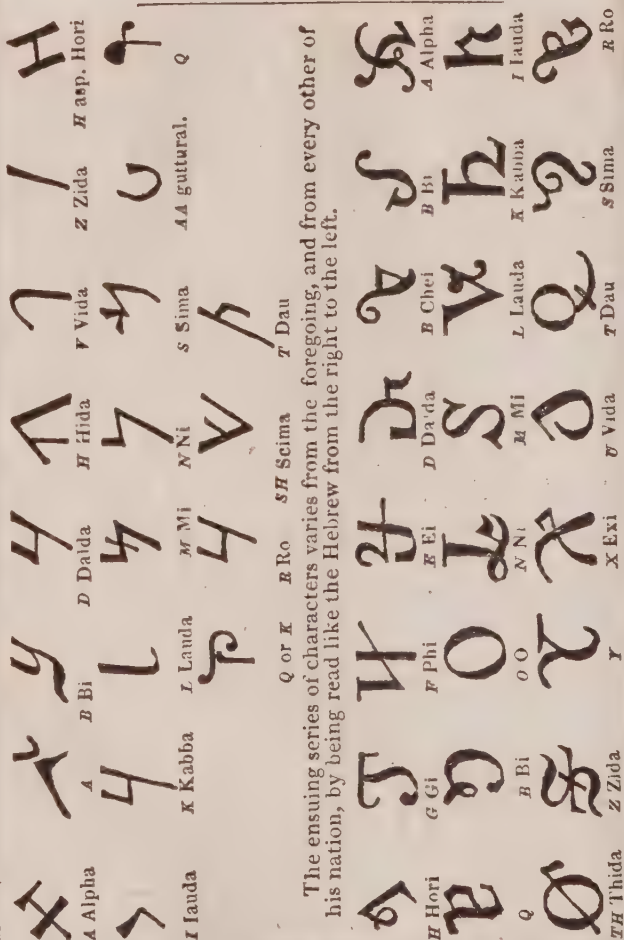 A Alpha A B Bi D Dalda H Hida V Vida Z Zida H asp. Hori
I Iauda K Kabba L Lauda M Mi N Ni S Sima AA guttural. Q
Q or K R Ro SH Scima T Dau
The ensuing series of characters varies from the foregoing, and from every other of
his nation, by being read like the Hebrew from the right to the left.
H Hori G Gi F Phi E Ei D Da'da B Chei B Bi A Alpha
Q B Bi O O N Ni M Mi L Lauda K Kabba I Iauda
TH Thida Z Zida Y X Exi U Vida T Dau S Sima R Ro